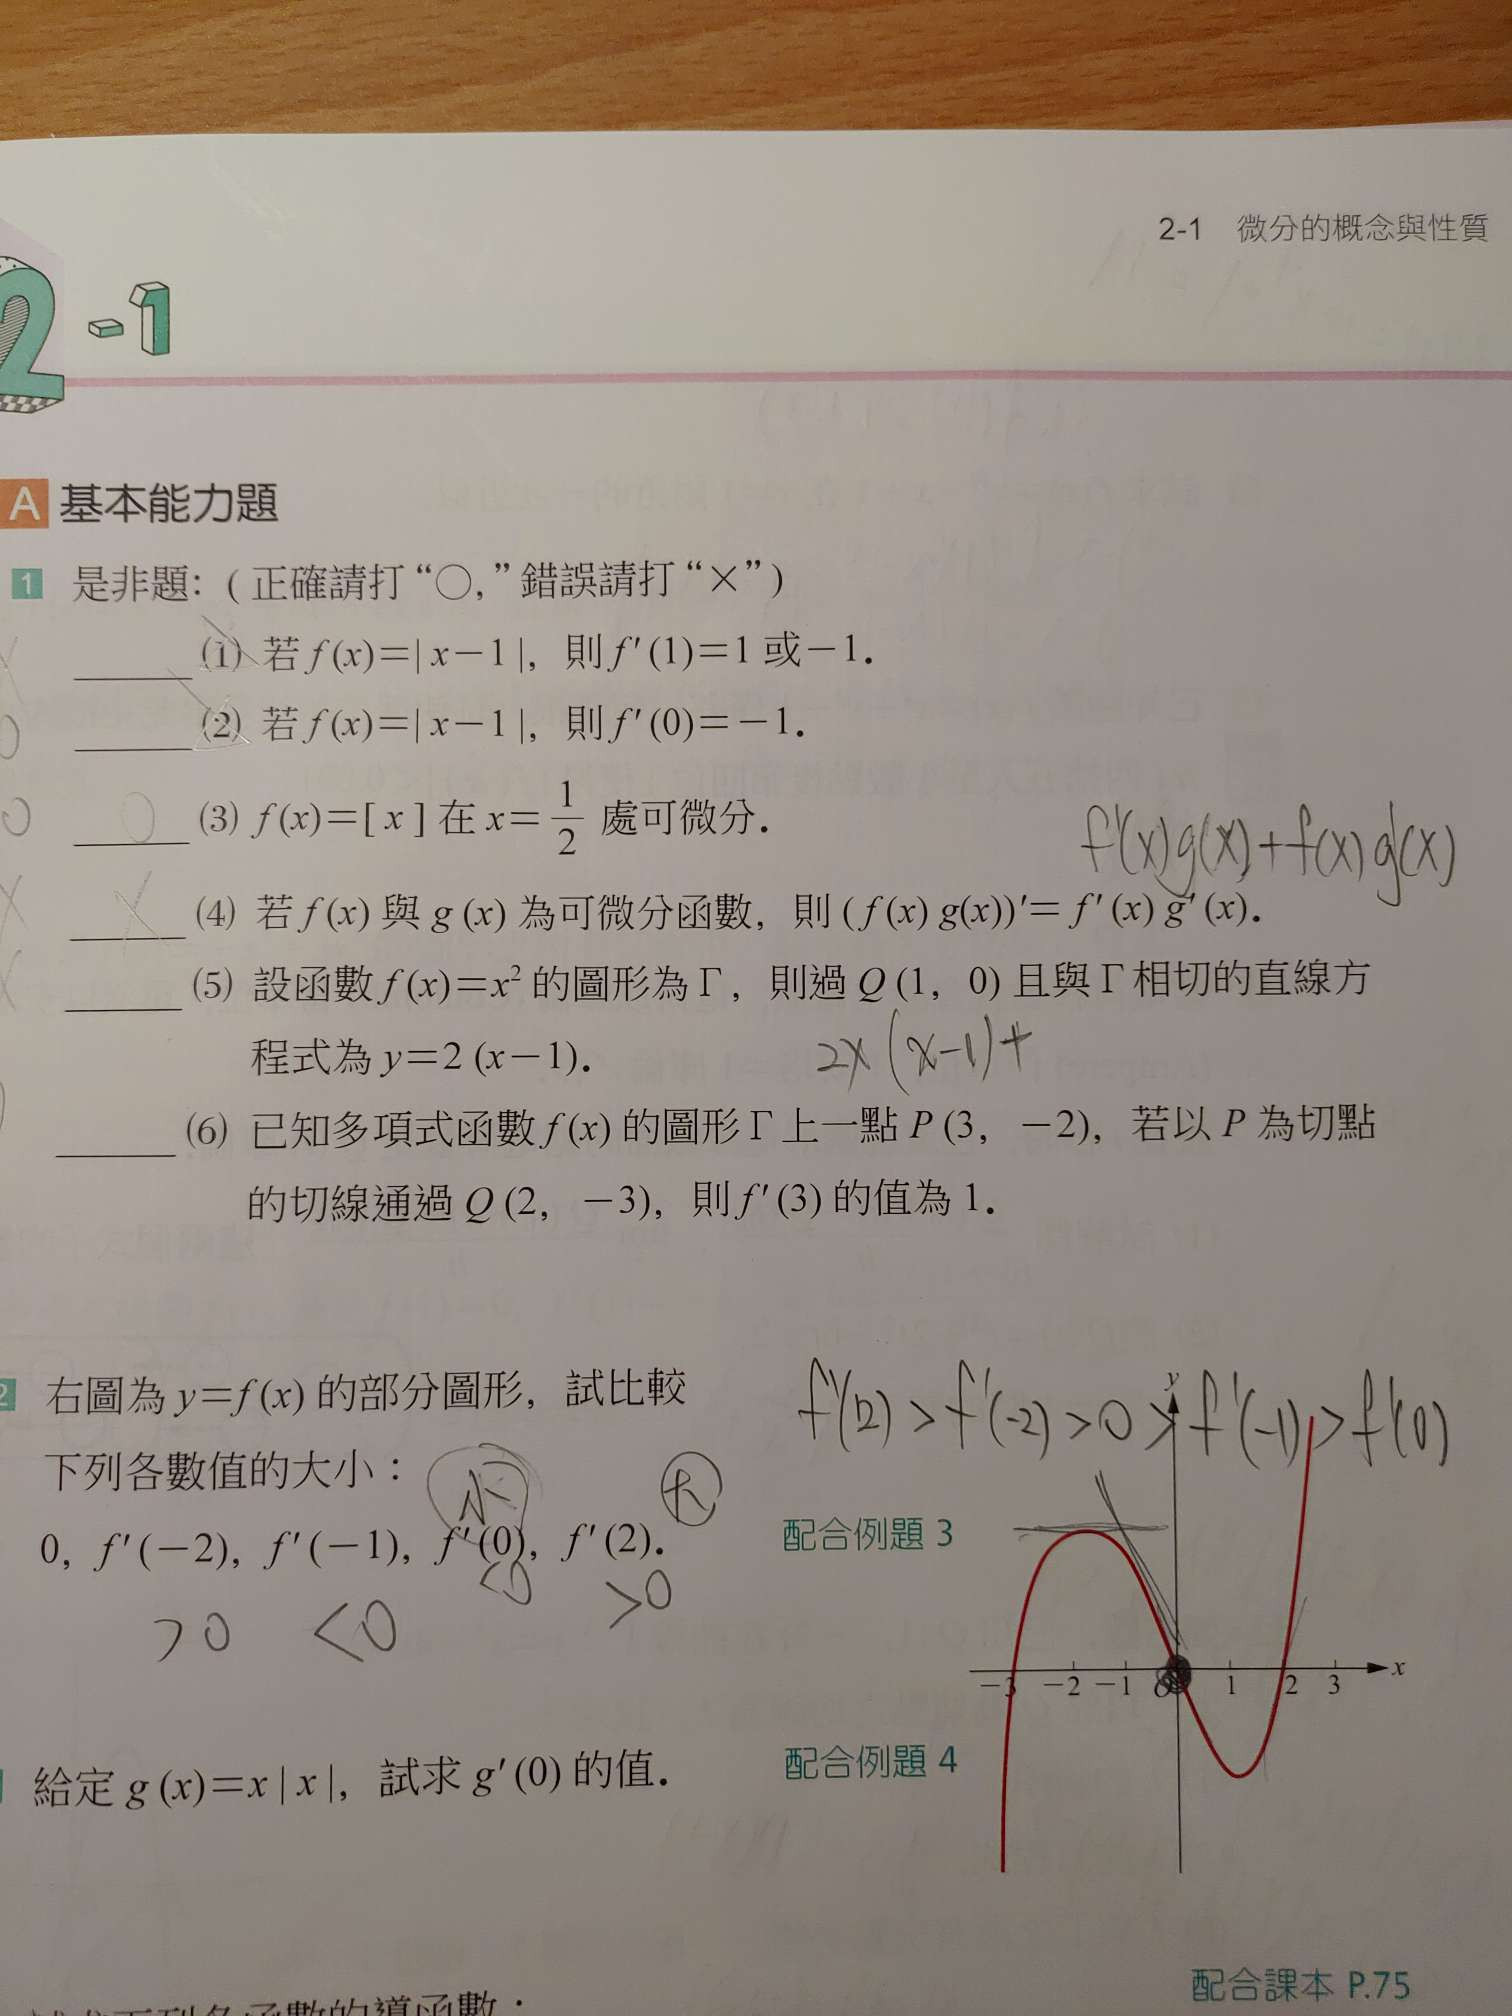 2-1 微分的概念與性質
2-1
A 基本能力題
1 是非題：(正確請打“○，”錯誤請打“×”)
(1) 若 f(x)=|x−1|，則 f′(1)=1 或−1．
(2) 若 f(x)=|x−1|，則 f′(0)=−1．
○ (3) f(x)=[x] 在 x=1/2 處可微分．
f′(x)g(x)+f(x)g′(x)
× (4) 若 f(x) 與 g(x) 為可微分函數，則 (f(x) g(x))′= f′(x) g′(x)．
(5) 設函數 f(x)=x² 的圖形為 Γ，則過 Q(1，0) 且與 Γ 相切的直線方
程式為 y=2(x−1)．
2x(x-1)+
(6) 已知多項式函數 f(x) 的圖形 Γ 上一點 P(3，−2)，若以 P 為切點
的切線通過 Q(2，−3)，則 f′(3) 的值為 1．
2 右圖為 y=f(x) 的部分圖形，試比較
f'(2) > f'(-2) > 0 > f'(-1) > f'(0)
下列各數值的大小：
小 大
0, f′(−2), f′(−1), f′(0), f′(2)．
>0 <0 <0 >0
配合例題 3
y
x
−3 −2 −1 O 1 2 3
給定 g(x)=x|x|，試求 g′(0) 的值．
配合例題 4
配合課本 P.75
試求下列各函數的導函數：